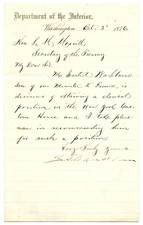 Department of the Interior,
Washington, Oct. 2d 1876
Hon. L. M. Morrill
Secretary of the Treasury
My Dear Sir:
Mr. Washburne
Son of our Minister to France, is
desirous of obtaining a clerical
position in the New York Custom
House and I take pleasure
in recommending him
for such a position
Very Truly Yours